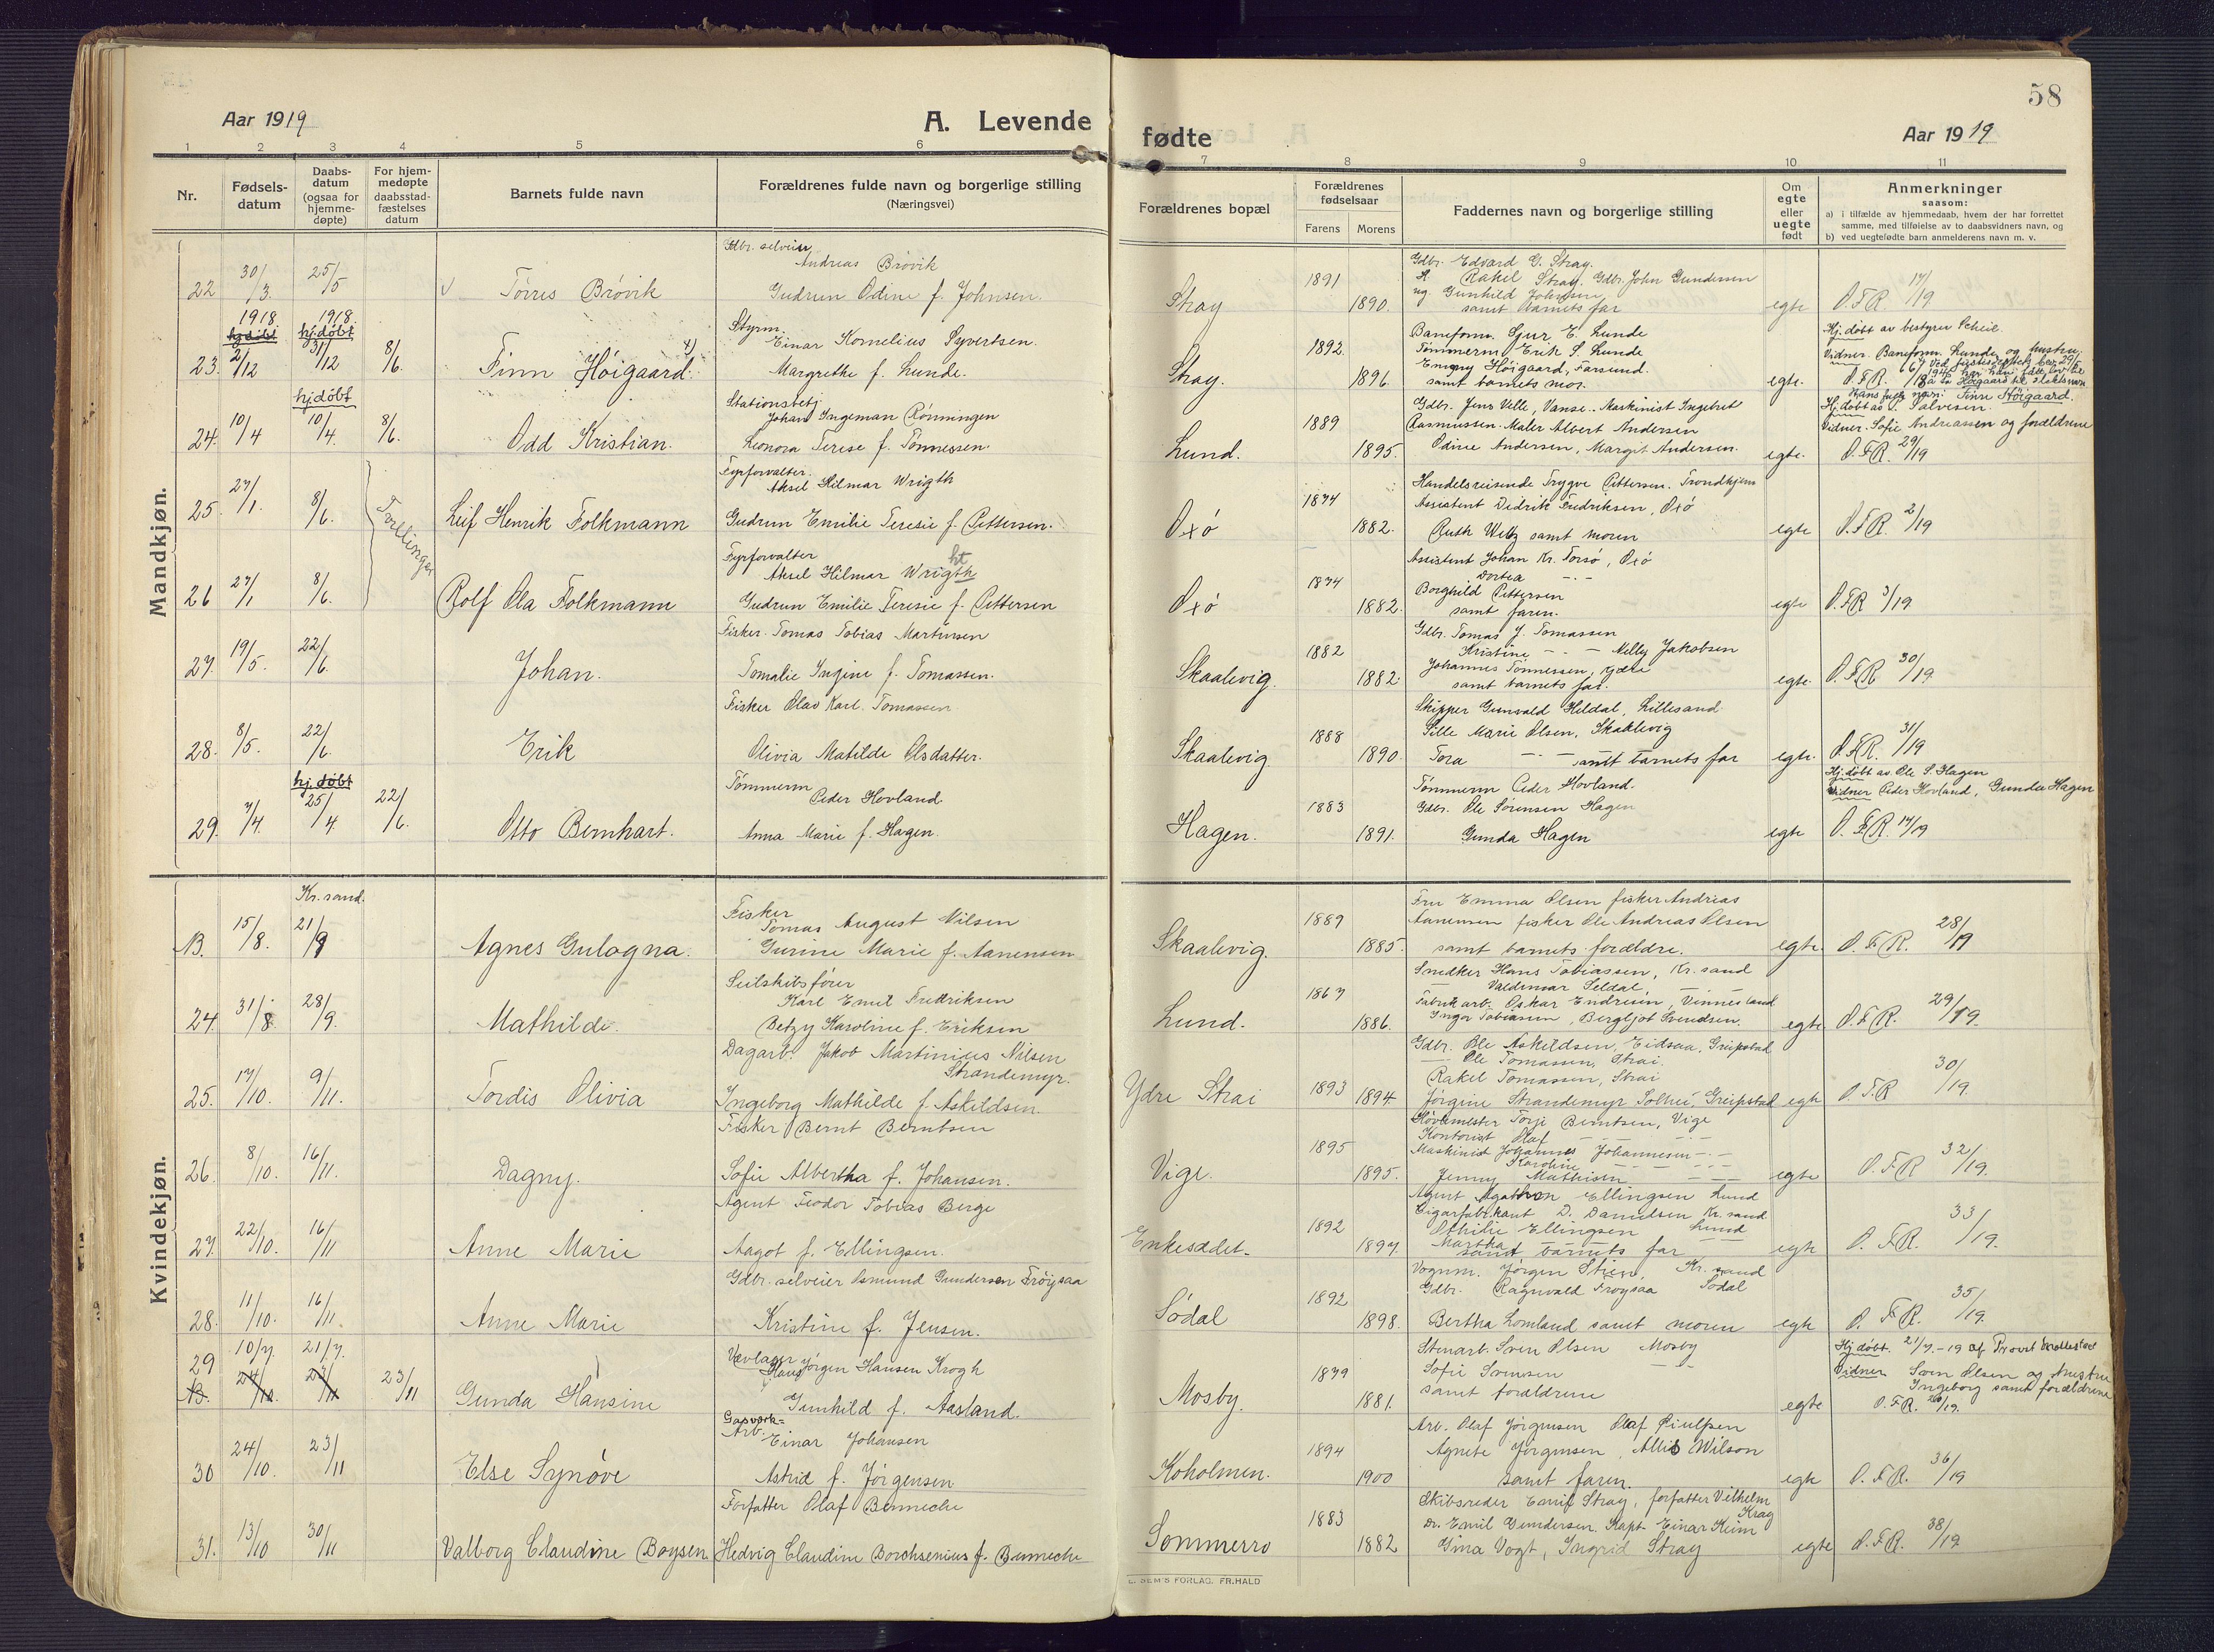 58
Aar 1919
A. Levende
fødte
Aar 1919
1 2 3 4 5 6 7 8 9 10 11
Nr.
Fødsels-
datum
Daabs-
datum
(ogsaa for
hjemme-
døpte)
For hjem-
medøpte
daabsstad-
fæstelses
datum
Barnets fulde navn
Forældrenes fulde navn og borgerlige stilling
(Næringsvei)
Forældrenes bopæl
Forældrenes
fødselsaar
Farens Morens
Faddernes navn og borgerlige stilling
Om
egte
eller
uegte
født
Anmerkninger
saasom:
a) i tilfælde av hjemmedaab, hvem der har forrettet
samme, med tilføielse av to daabsvidners navn, og
b) ved uegtefødte barn anmelderens navn m. v.
Mandkjøn.
22 30/3. 25/5 Tørres Brøvik
Gdbr. selveier
Andreas Brøvik
Gudrun Odine f. Johnsen.
Stray 1891 1890.
Gdbr. Edvard G. Stray.
Rakel Stray. Gdbr. John Gundersen
ug. Gunhild Johnsen
samt barnets far
egte O.F.R. 17/19
1918. 1918.
hj.døbt
23. 2/12 31/12 8/6. Finn Høigaard.
Styrm.
Einar Kornelius Syvertsen.
Margrethe f. Lunde.
Stray. 1892. 1896.
Baneform. Sjur E. Lunde
Tømmerm Erik S. Lunde
Emmy Høigaard, Farsund
samt barnets mor.
egte.
Hj.døbt av bestyrer Scheie.
Vidner. Baneform. Lunde og hustru
O.F.R. 6/19
Hans fulde navn: Finn Høigaard.
hj.døbt
24. 10/4 10/4. 8/6. Odd Kristian.
Stationsbetj.
Johan Ingeman Rønningen
Leonora Terese f. Tønnessen.
Lund. 1889 1895.
Gdbr. Jens Velle, Vanse. Maskinist Ingebret
Rasmussen. Maler Albert Andersen
Odine Andersen, Margit Andersen.
egte.
Hj.døbt av S. Salvesen.
Vidner. Sofie Andreassen og forældrene
O.F.R. 29/19
25. 27/1. 8/6. Tvillinger Leif Henrik Folkmann
Fyrforvalter.
Aksel Hilmar Wrigth
Gudrun Emilie Teresie f. Pettersen.
Oxø 1874 1882.
Handelsreisende Trygve Pettersen. Trondhjem
Assistent Didrik Fredriksen, Oxø
Ruth Weltz samt moren
egte O.F.R. 2/19
26 27/1 8/6. Rolf Ola Folkmann
Fyrforvalter
Aksel Hilmar Wrigth ht
Gudrun Emilie Teresie f. Pettersen
Oxø 1874 1882.
Assistent Johan Kr. Torsø, Oxø
Dortea - - -
Borghild Pettersen
samt faren.
egte O.F.R 3/19
27. 19/5. 22/6. Johan.
Fisker. Tomas Tobias Martinsen
Tomalie Ingine f. Tomassen.
Skaalevig. 1882 1882.
Gdbr. Tomas J. Tomassen
Kristine - - - Nelly Jakobsen
Johannes Tønnessen, Kjære
samt barnets far.
egte. O.F.R 30/19
28. 8/5. 22/6. Erik
Fisker Olav Karl Tomassen
Olivia Matilde Olsdatter.
Skaalevig 1888 1890.
Skipper Gunvald Hildal, Lillesand
Sille Marie Olsen, Skaalevig
Tora - - - samt barnets far
egte. O.F.R. 31/19
hj.døbt
29. 7/4. 25/4. 22/6. Otto Bernhart.
Tømmerm
Peder Hovland.
Anna Marie f. Hagen.
Hagen. 1883 1891.
Tømmerm Peder Hovland.
Gdbr. Ole Sørensen Hagen
Gunda Hagen
egte
Hj.døbt av. Ole S. Hagen
Vidner Peder Hovland, Gunda Hagen
O.F.R. 14/19
Kvindekjøn.
Kr. sand.
15/8. 21/9 Agnes Gulagna.
Fisker
Tomas August Nilsen
Gurine Marie f. Aanensen
Skaalevig. 1889 1885.
Fru Emma Olsen fisker Andreas
Aanensen fisker Ole Andreas Olsen
samt barnets forældre.
egte. O.F.R. 28/19
24. 31/8. 28/9. Mathilde.
Seilskibsfører
Karl Emil Fredriksen
Betzy Karoline f. Eriksen
Lund. 1867 1886.
Snedker Hans Tobiassen, Kr. sand
— Valdemar Seldal, —
Fabrikarb. Oskar Endresen, Vennesland
Inga Tobiassen, Bergljot Svendsen.
egte O.F.R. 29/19.
25. 17/10. 9/11. Tordis Olivia
Dagarb. Jakob Martinius Nilsen
Strandemyr.
Ingeborg Mathilde f. Askildsen.
Ydre Strai 1893 1894
Gdbr. Ole Askildsen, Eidsaa, Greipstad
— Ole Tomassen, Strai.
Rakel Tomassen, Strai
Jørgine Strandemyr Solhei, Greipstad
egte O.F.R 30/19.
26. 8/10. 16/11. Dagny.
Fisker Bernt Berntsen
Sofie Albertha f. Johansen.
Vige. 1895 1895.
Torje Berntsen, Vige
Kontorist Olaf — —
Maskinist Johannes Johannesen — —
Karoline — —
Jenny Mathisen — —
egte O.F.R 32/19.
27. 22/10. 16/11 Anne Marie
Agent Feodor Tobias Berge
Aagot f. Ellingsen.
Enkesædet. 1892 1897.
Agent Agathon Ellingsen Lund
Cigarfabrikant D. Danielsen Kr. sand
Othilie Ellingsen Lund
Martha — —
samt barnets far
egte O.F.R. 33/19.
28. 11/10. 16/11. Anne Marie
Gdbr. selveier Osmund Gundersen Frøysaa
Kristine f. Jensen.
Sødal 1892 1898.
Vognm. Jørgen Stien, Kr. sand
Gdbr. Ragnvald Frøysaa Sødal
Bertha Lomland samt moren
egte O.F.R. 35/19.
29 10/7. 21/7. 23/11 Gunda Hansine
Hans Jørgen Hansen Krogh
Gunhild f. Aasland.
Mosby. 1879 1881.
Stenarb. Sven Olsen Mosby
Sofie Svensen — —
samt forældrene
egte
Hj.døbt. 21/7.-19 af Provst
Vidner Sven Olsen og hustru
Ingeborg samt forældrene
O.F.R. 20/19.
30 24/10. 23/11 Else Synøve
Gasverk-
Arb.
Einar Johansen
Astrid f. Jørgensen
Koholmen. 1894 1900
Arb. Olaf Jørgensen Olaf
Agnete Jørgensen, Allis Wilson
samt faren.
egte O.F.R. 36/19
31. 13/10 30/11 Valborg Claudine Boysen
Forfatter Olaf Benneche
Hedvig Claudine Borchsenius f. Benneche
Sommerro 1883 1882
Skibsreder Emil Stray, forfatter Vilhelm
Krag
Dr. Emil Gundersen. Kapt. Einar Keim
Gina Vogt, Ingrid Stray
egte O.F.R. 38/19
E. SEM'S FORLAG. FR.HALD